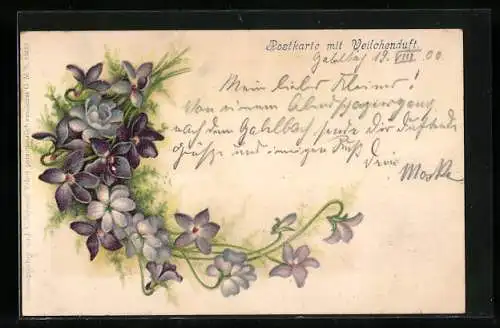 Postkarte mit Veilchenduft.
Gabelbach 19. VIII 00.
Mein lieber Kleiner!
Von einem Abendspaziergang
nach dem Gabelbach sende dir duftende
Grüsse und innigen Kuß
Dein